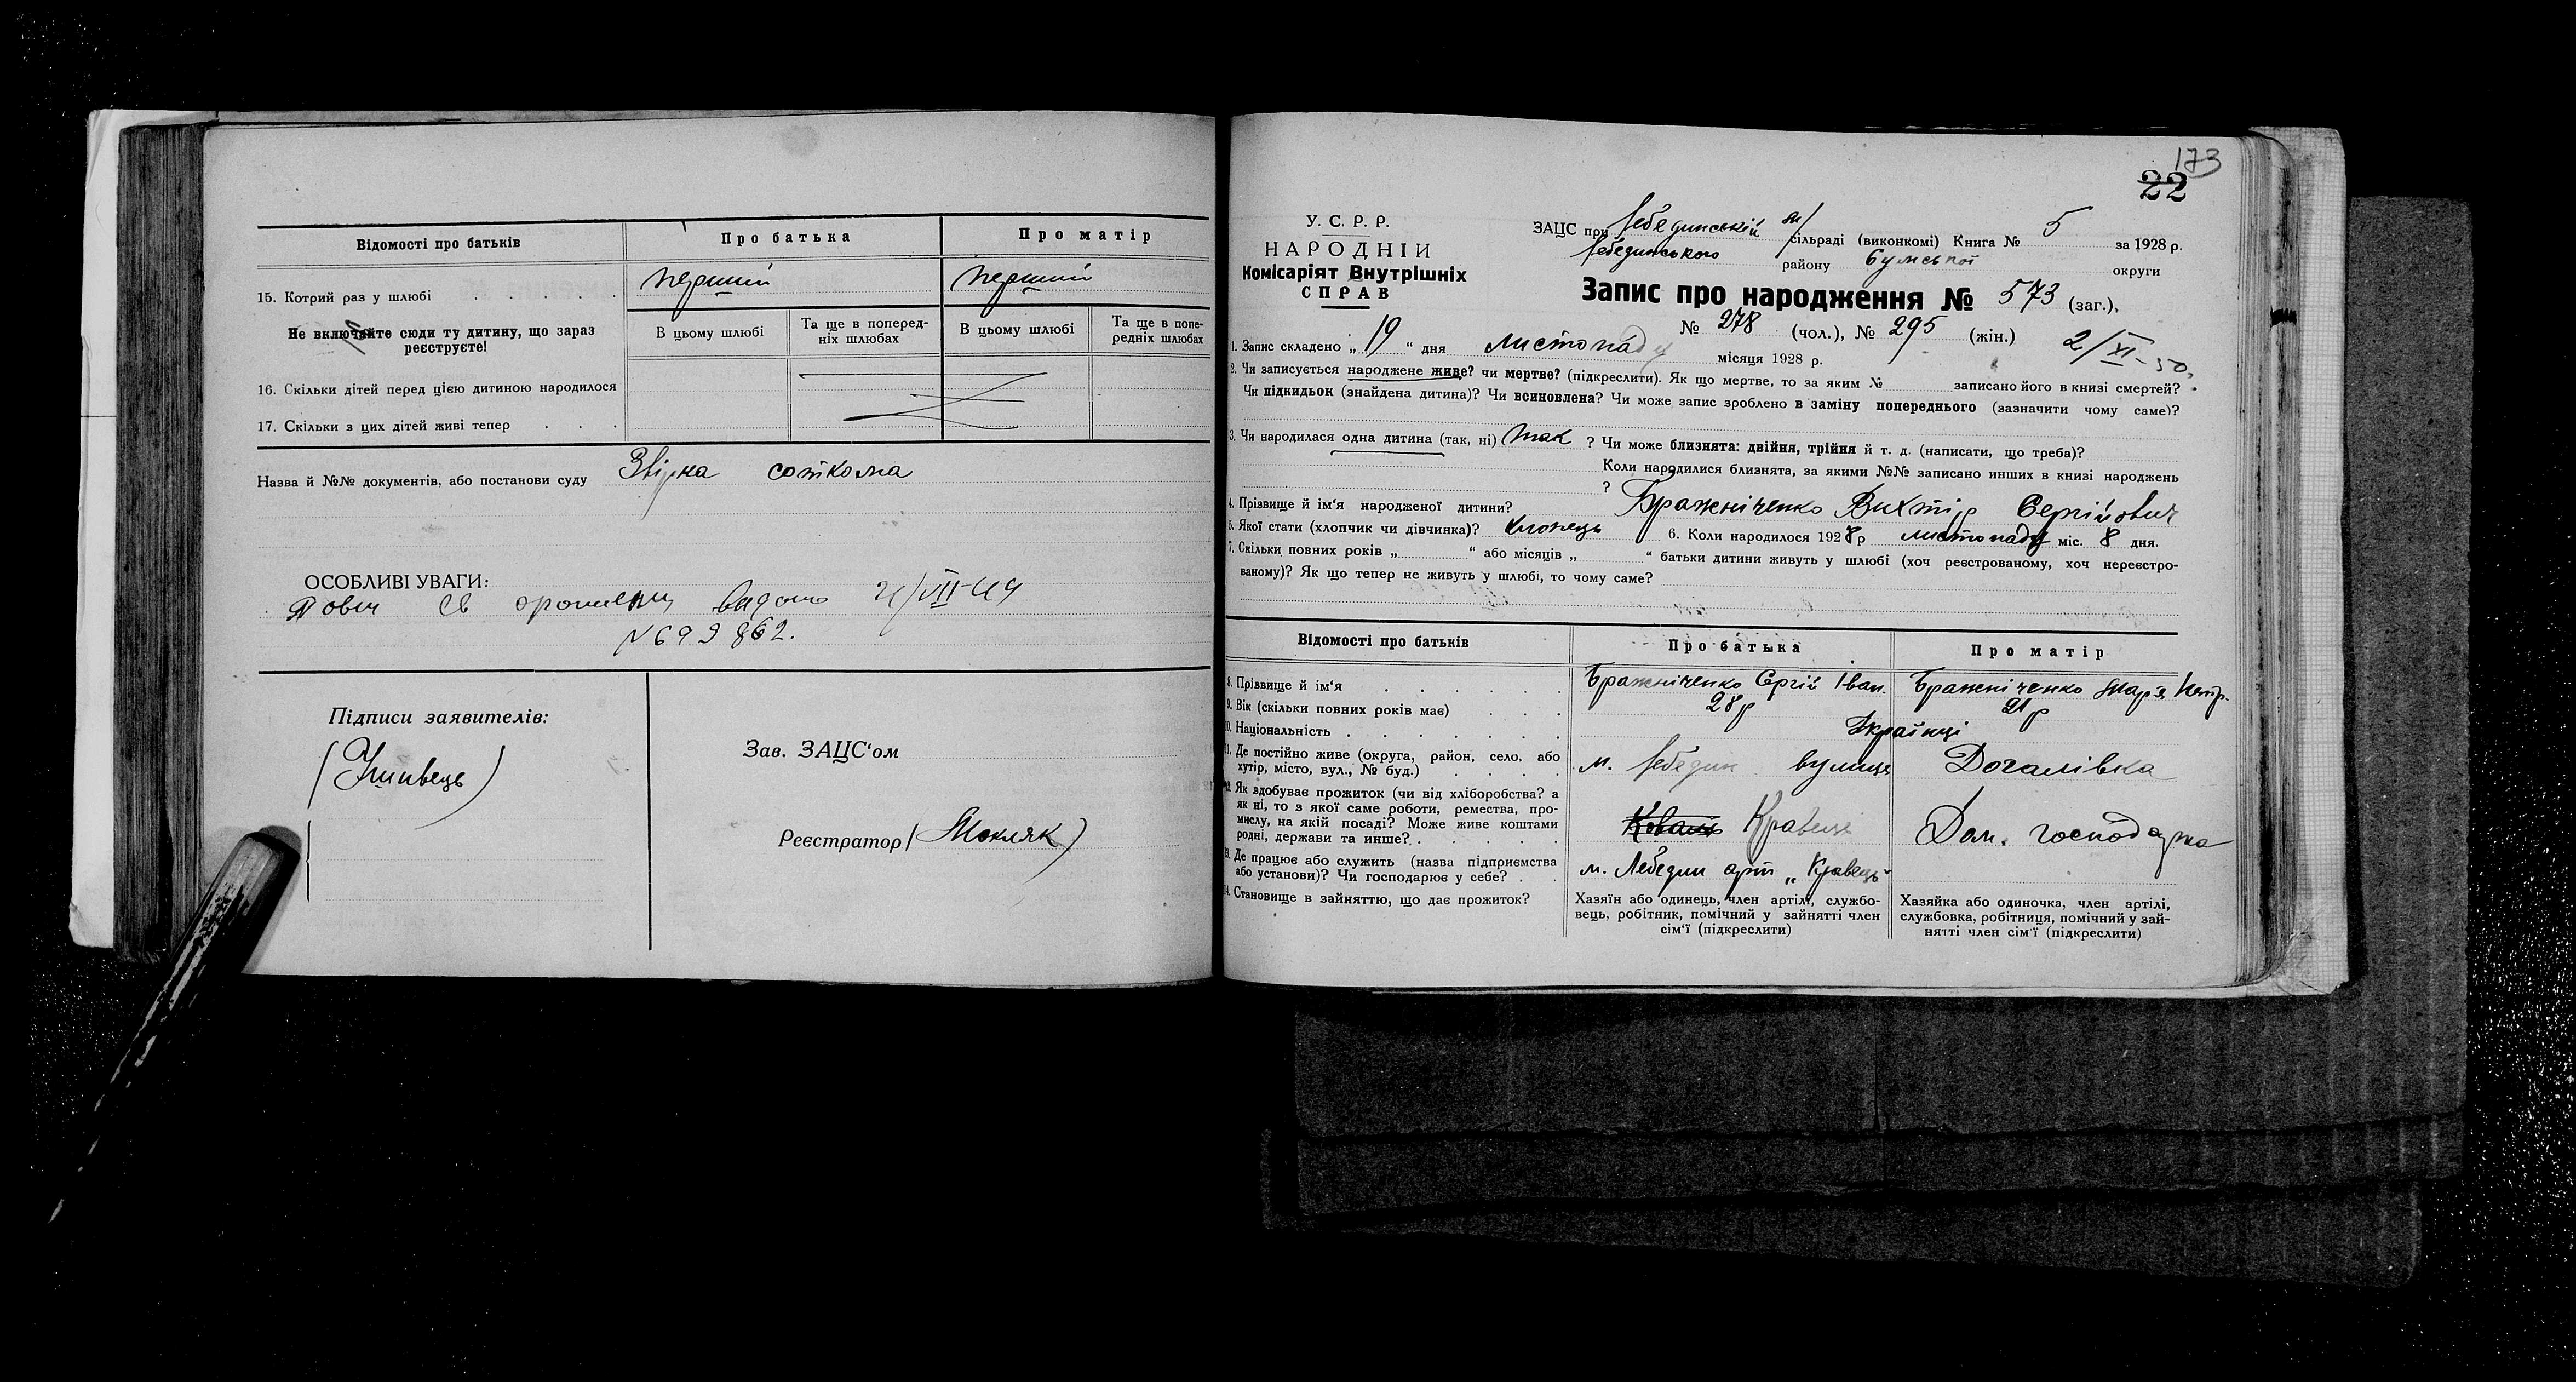 Відомості про батьків
Про батька
Про матір
15. Котрий раз у шлюбі . . . . . .
перший
перший
Не включайте сюди ту дитину, що зараз
реєструєте!
В цьому шлюбі
Та ще в поперед-
ніх шлюбах
В цьому шлюбі
Та ще в попе-
редніх шлюбах
16. Скільки дітей перед цією дитиною народилося
17. Скільки з цих дітей живі тепер . . .
Назва й №№ документів, або постанови суду
ОСОБЛИВІ УВАГИ:
видано
№ 699862.
Підписи заявителів:
Зав. ЗАЦС'ом
Реєстратор
173
22
У. С. Р. Р.
НАРОДНІЙ
Комісаріят Внутрішніх
СПРАВ
ЗАЦС при Лебединській сільраді (виконкомі) Книга № 5 за 1928 р.
Лебединського району Сумської округи
Запис про народження № 573 (заг.),
№ 278 (чол.), № 295 (жін.)
2/XI-50
1. Запис складено „19“ дня листопаду місяця 1928 р.
2. Чи записується народжене живе? чи мертве? (підкреслити). Як що мертве, то за яким № записано його в книзі смертей?
Чи підкидьок (знайдена дитина)? Чи всиновлена? Чи може запис зроблено в заміну попереднього (зазначити чому саме)?
3. Чи народилася одна дитина (так, ні) так ? Чи може близнята: двійня, трійня й т. д. (написати, що треба)?
Коли народилися близнята, за якими №№ записано инших в книзі народжень
?
4. Прізвище й ім'я народженої дитини? Бражніченко Вихтір Сергійович
5. Якої стати (хлопчик чи дівчинка)? хлопець 6. Коли народилося 1928 р листопаду міс. 8 дня.
7. Скільки повних років „ “ або місяців „ “ батьки дитини живуть у шлюбі (хоч реєстрованому, хоч нереєстро-
ваному)? Як що тепер не живуть у шлюбі, то чому саме?
Відомості про батьків
Про батька
Про матір
8. Прізвище й ім'я . . . . . .
Бражніченко Сергій Іван.
Бражніченко Мар'я Петр.
9. Вік (скільки повних років має) . . .
28р
21р
10. Національність . . . . . . .
Українці
11. Де постійно живе (округа, район, село, або
хутір, місто, вул., № буд.) . . . .
м. Лебедин вулиця Догалівка
12. Як здобуває прожиток (чи від хліборобства? а
як ні, то з якої саме роботи, ремества, про-
мислу, на якій посаді? Може живе коштами
родні, держави та инше?. . . . . .
Коваль Кравець
Дом. господарка
13. Де працює або служить (назва підприємства
або установи)? Чи господарює у себе? . .
м. Лебедин арт „Кравець“
14. Становище в зайняттю, що дає прожиток?
Хазяїн або одинець, член артілі, службо-
вець, робітник, помічний у зайнятті член
сім'ї (підкреслити)
Хазяйка або одиночка, член артілі,
службовка, робітниця, помічний у зай-
нятті член сім'ї (підкреслити)